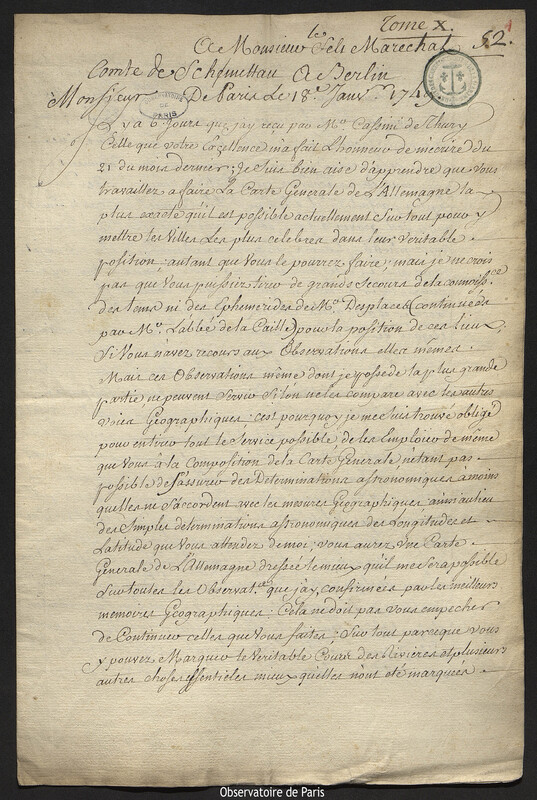 Tome X.
52.
A Monsieur le Felt Marechal
Comte de Schemettau A Berlin
De Paris Le 18e Janv. 1749
Monsieur
PARIS
Il y a 6 Jours que jay reçu par Mr. Cassini de Thury
Celle que votre Excellence m'a fait L'honneur de mecrire du
21 du mois dernier; Je suis bien aise d'apprendre que Vous
travaillez a faire La Carte Generale de L'Allemagne la
plus exacte qu'il est possible actuellement Sur tout pour y
mettre les Villes Les plus celebres dans leur veritable
position, autant que Vous le pourrez faire; mais je ne crois
pas que Vous puissiez tirer de grands Secours de la connoissce
des tems ni des Ephemerides de Mr. Desplaces (continuées
par Mr. L'abbé de la Caille) pour la position de ces lieux,
Si Vous n'avez recours aux Observations elles mêmes.
Mais ces Observations même dont je possede la plus grande
partie ne peuvent Servir Si l'on ne les compare avec les autres
voies Geographiques: c'est pourquoy je me suis trouvé obligé
pour en tirer tout le Service possible de les Emploier de même
que Vous à la Composition de la Carte Generale, n'étant pas
possible de s'assurer des Determinations astronomiques à moins
quelles ne S'accordent avec les mesures Geographiques ainsi au lieu
des Simples déterminations astronomiques des Longitudes et
Latitude que Vous attendez de moi, vous aurez Une Carte
Generale de L'Allemagne dressée le mieux qu'il me sera possible
Sur toutes les Observat.es que jay, confirmées par les meilleurs
memoires Geographiques: Cela ne doit pas vous empecher
de Continuer celles que Vous faites; Sur tout parceque vous
y pouvez Marquer le Veritable Cours des Rivières et plusieurs
autres choses essentieles mieux qu'elles n'ont été marquées
Observatoire de Paris